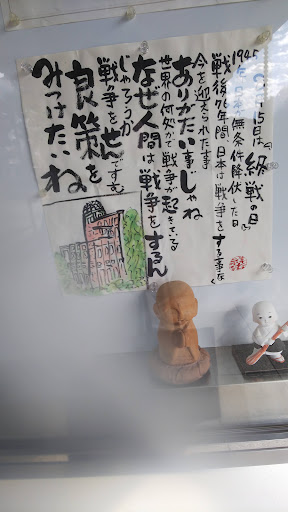 15日は、終戦の日
1945年、日本無条件降伏した日
戦後76年間、日本は戦争をする事なく
今を迎えられた事
ありがたい事じゃね
世界の何処かで戦争が起きている
なぜ人間は戦争をするん
じゃろうか
戦争をせんですむ
良策を
みつけたいね